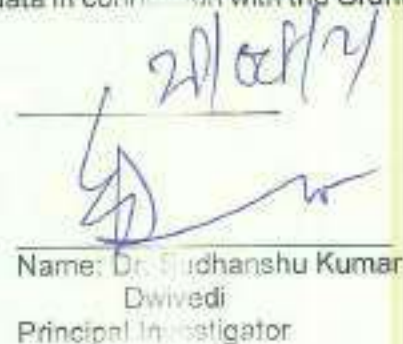 data in connection with the
28/Oct/21
Name: Dr. Sudhanshu Kumar
Dwivedi
Principal Investigator